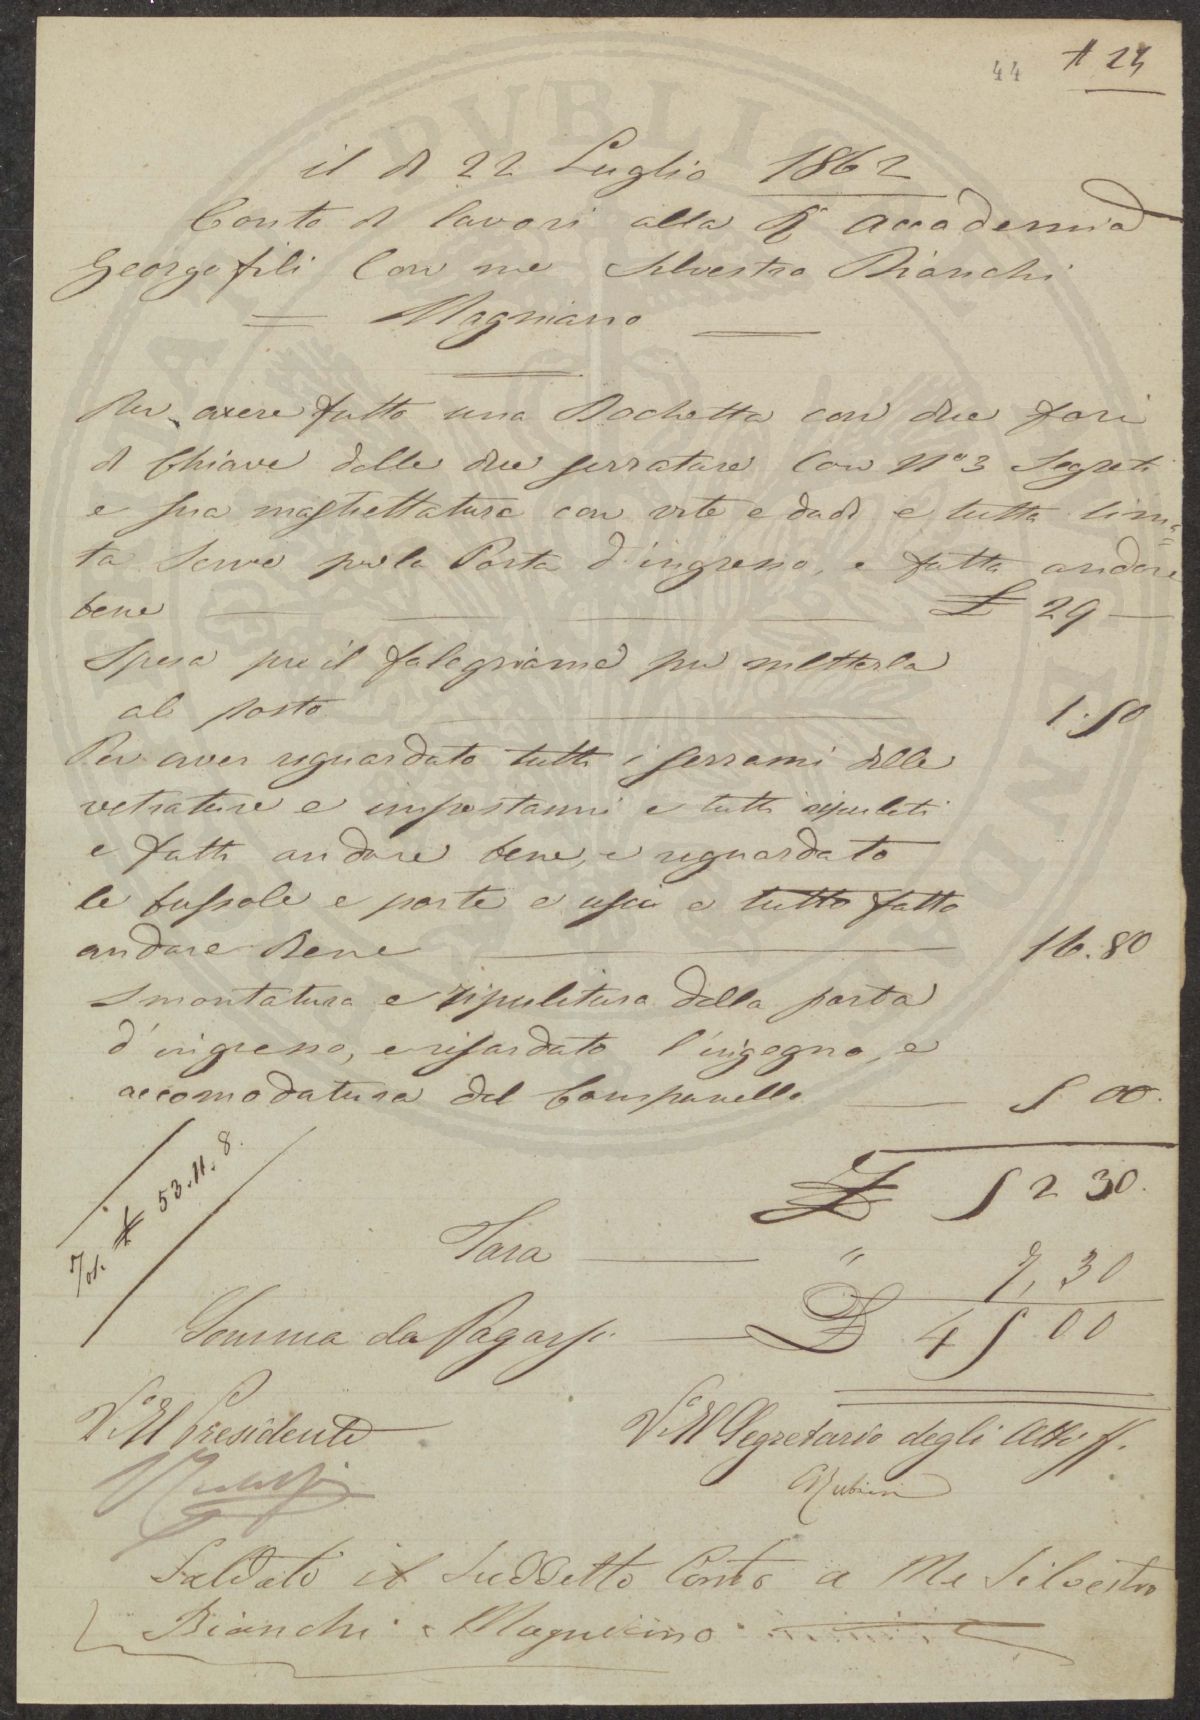 44 # 24
il di 22 Luglio 1862
Conto di lavori alla R Accademia
Georgofili Con me Silvestro Bianchi
Magniano
Per avere fatto una Bochetta con due fori
di Chiave delle due serrature Con No 3 Segreti
e sua mastiettatura con vite e dadi e tutta lima=
ta Serve per la Porta d'ingresso, e fatta andare
bene £ 29
Spesa per il falegniame per metterla
al posto 1.50
Per aver riguardato tutti i serrami delle
vetrature e impostanni e tutti ripuliti
e fatti andare bene, e riguardato
le bussole e porte e usci e tutto fatto
andare Bene 16.80
Smontatura e ripulitura della porta
d'ingresso, e risardato l'ingegno, e
accomodatura del Companello 5 00.
£ 52 30.
53.11.8.
Tara " 7,30
Somma da Pagarsi £ 45.00
Vo Il Presidente
Vo Il Segretario degli Atti ff.
Rubieri
Saldato il Suddetto Conto a Me Silvestro
Bianchi Magniano
PUBLICAE UTILITATI